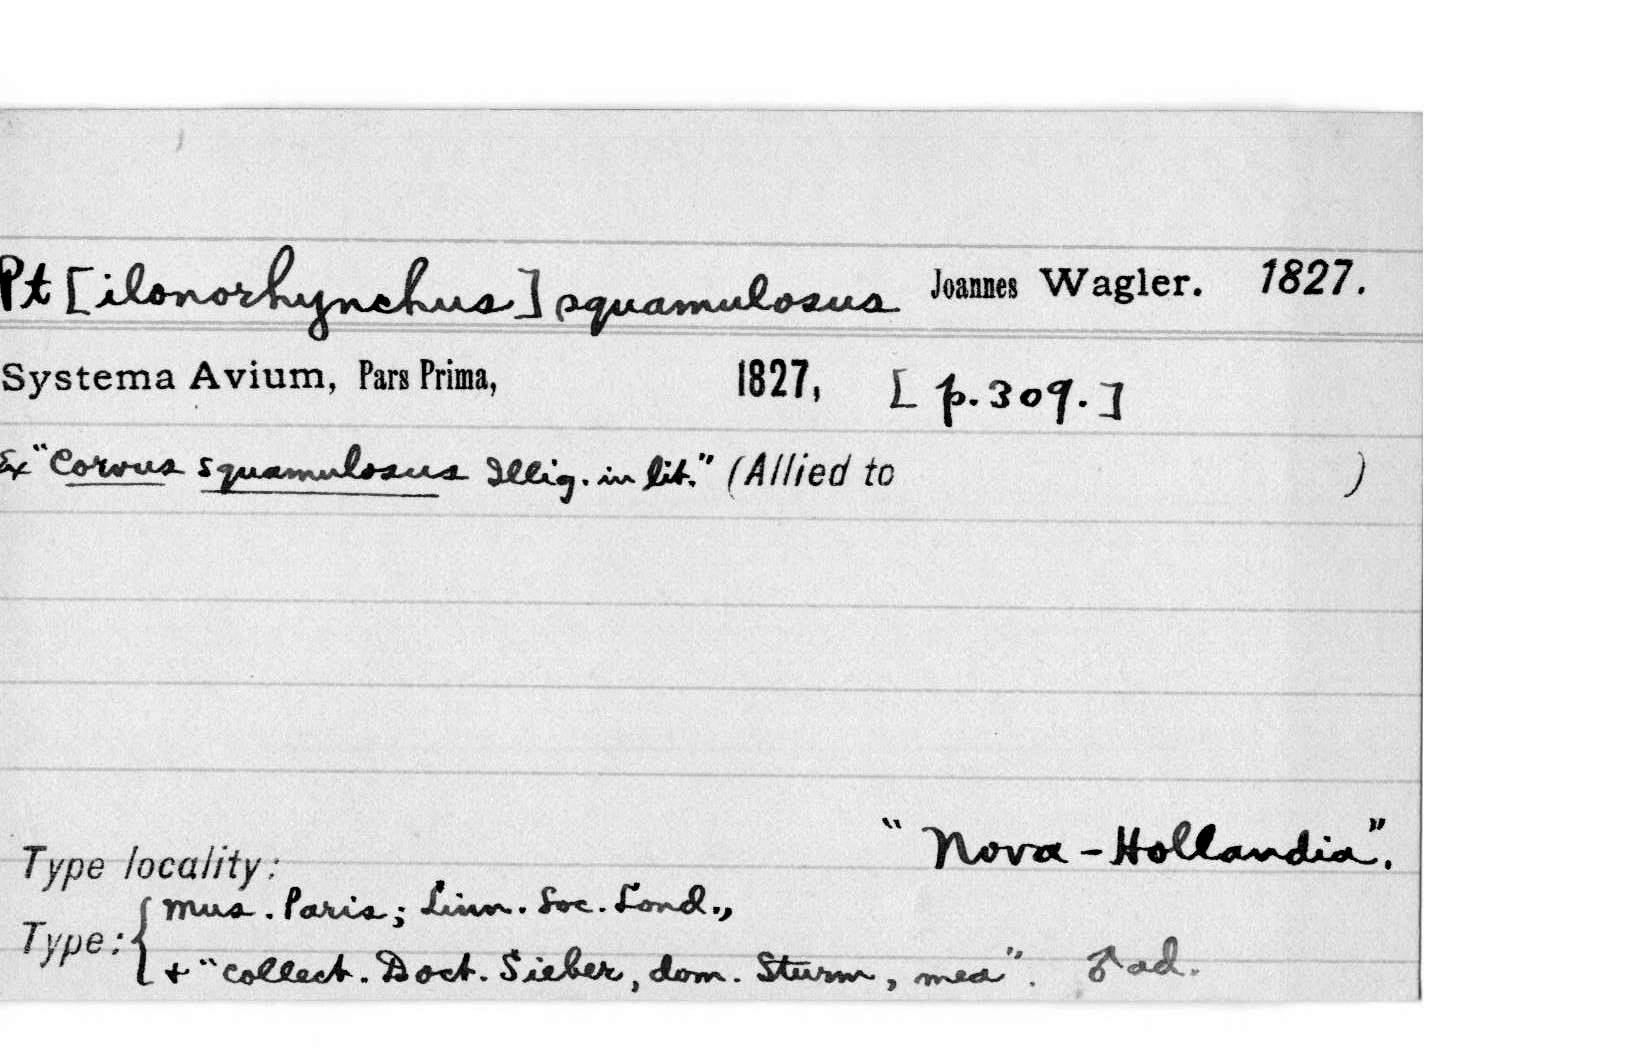 Pt [ilonorhynchus] squamulosus Joannes Wagler. 1827.
Systema Avium, Pars Prima, 1827, [p. 309.]
Ex "Corvus squamulosus Illig. in lit." (Allied to )
"Nova-Hollandia".
Type locality:
Mus. Paris; Linn. Soc. Lond.,
Type:
+ "collect. Doct. Sieber, dom. Sturm, mea". ♂ ad.